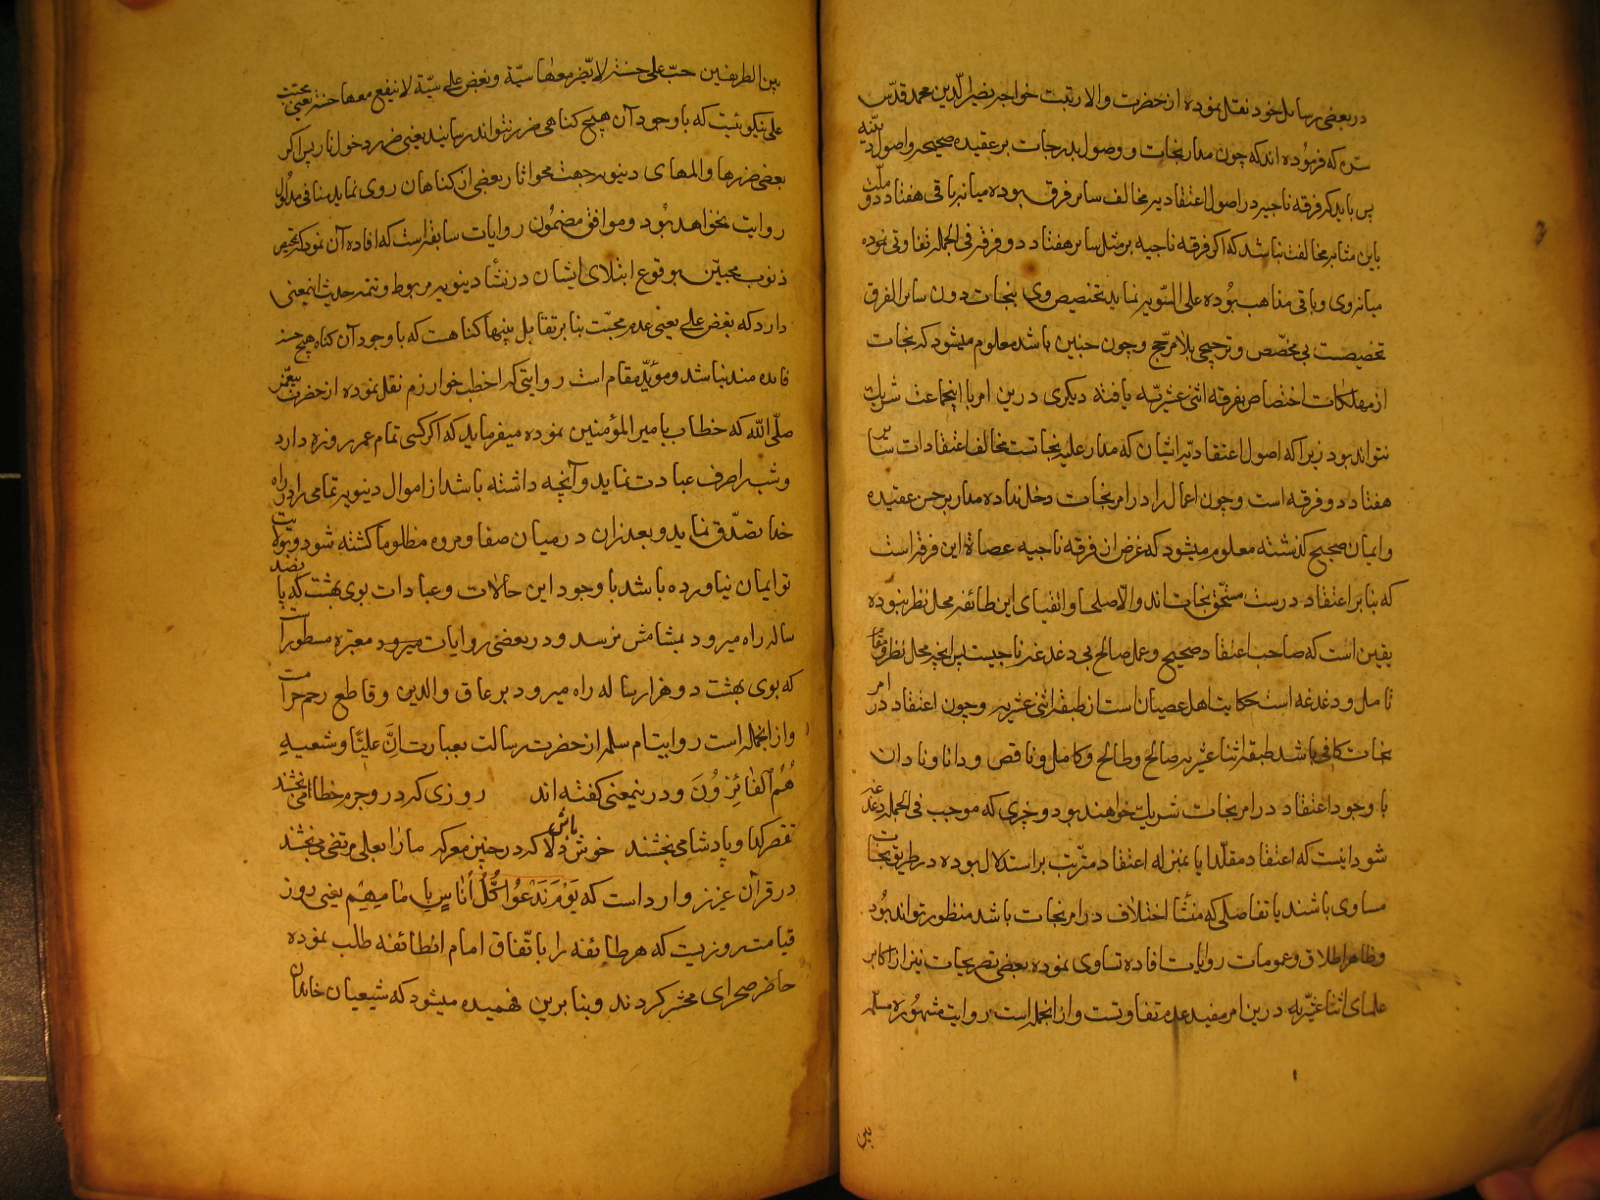 در بعضی رسایل خود نقل نموده از حضرت والا رتبت خواجه نصیر الدین محمد قدس
سره که فرموده اند که چون مدار نجات و وصول بدرجات بر عقیده صحیحه و اصول دینیه
پس باید که فرقه ناجیه در اصول اعتقادیه مخالف سایر فرق بوده میانه باقی هفتاد دو ملت
باین مثابه مخالفت نباشد که اکر فرقه ناجیه بر مثل سایر هفتاد دو فرقه فی الجمله تفاوتی نموده
میانه وی و باقی مذاهب بوده علی السویه نماید تخصیص وی بنجات دون سایر الفرق
تخصیصت بی مخصص و ترجیحی بلا مرجح و چون چنین باشد معلوم میشود که نجات
از مهلکات اختصاص بفرقه اثنی عشریه یافته دیکری درین امر با اینجماعت شریک
نتواند بود زیرا که اصول اعتقادیه ایشان که مدار علیه نجاتست مخالف اعتقادات سایر
هفتاد دو فرقه است و چون اعمال را در امر نجات دخل نداده مدار بر حسن عقیده
و ایمان صحیح کذشته معلوم میشود که غرض ان فرقه ناجیه عصاة این فرقه است
که بنا بر اعتقاد درست مستحق نجات اند و الا صلحا و اتقیای این طائفه محل نظر نبوده
یقین است که صاحب اعتقاد صحیح و عمل صالح بی دغدغه ناجیست پس انچه محل نظر و مقام
تامل و دغدغه است حکایت اهل عصیان است از طبقه اثنی عشریه و چون اعتقاد در امر
نجات کافی باشد طبقه اثنا عشریه صالح و طالح و کامل و ناقص و دانا و نادان
با وجود اعتقاد در امر نجات شریک خواهند بود و چیزی که موجب فی الجمله دغدغه
شود اینست که اعتقاد مقلد ایا بمنزله اعتقاد مترتب بر استدلال بوده در طریق نجات
مساوی باشند یا تفاضلی که منشأ اختلاف در امر نجات باشد منظور تواند بود
و ظاهر اطلاق و عمومات روایات افاده تساوی نموده بعضی تصریحات نیز از اکابر
علمای اثنا عشریه درین امر مفید عدم تفاوتست و از انجمله است روایت مشهوره مسلمه
بین
بین الطریفین حب علی حسنة لا یضر معها سیئة و بغض علی سیئة لا ینفع معها حسنة یعنی محبت
علی نیکوئیست که با وجود آن هیچ کناهی ضرر نتواند رسانید یعنی ضرر دخول نار پس اکر
بعضی ضررها و المهای دنیویه جهت محو اثار بعضی از کناهان روی نماید منافی مدلول
روایت نخواهد بود و موافق مضمون روایات سابقه است که افاده آن نمود که تحتیم
ذنوب محبین بوقوع ابتلای ایشان در نشأ دنیویه مربوط و تتمه حدیث اینمعنی
دارد که بغض علی یعنی عدم محبت بنا بر تقابل بینهما کناهست که با وجود آن کناه هیچ حسنه
فائده مند نباشد و مؤید مقام است روایتی که اخطب خوارزم نقل نموده از حضرت پیغمبر
صلی الله که خطاب بامیر المؤمنین نموده میفرماید که اکر کسی تمام عمر روزه دارد
و شب را صرف عبادت نماید و آنچه داشته باشد از اموال دنیویه تمامی را در راه
خدا تصدق نماید و بعد از ان در میان صفا و مروه مظلوما کشته شود و بولایت
تو ایمان نیاورده باشد با وجود این حالات و عبادات بوی بهشت که پانصد
ساله راه میرود بمشامش نرسد و در بعضی روایات معتبره مسطور است
که بوی بهشت دو هزار ساله راه میرود بر عاق والدین و قاطع رحم حرامست
و از انجمله است روایت ام سلمه از حضرت رسالت بعبارت اِنَّ عَلِیًّا وَ شِیعَتِهِ
هُمُ الْفَائِزُونَ و درینمعنی کفته اند روزی که در و جرم خطا می بخشند
تقصیر کدا و پادشا می بخشند خوش باش دلا که در چنین معرکه ما را بعلی مرتضی می بخشند
در قرآن عزیز وارد است که یَوْمَ نَدْعُوا کُلَّ اُنَاسٍ بِاِمَامِهِمْ یعنی روز
قیامت روزیست که هر طائفه را باتفاق امام انطائفه طلب نموده
حاضر صحرای محشر کردند و بنابرین فهمیده میشود که شیعیان خاندان